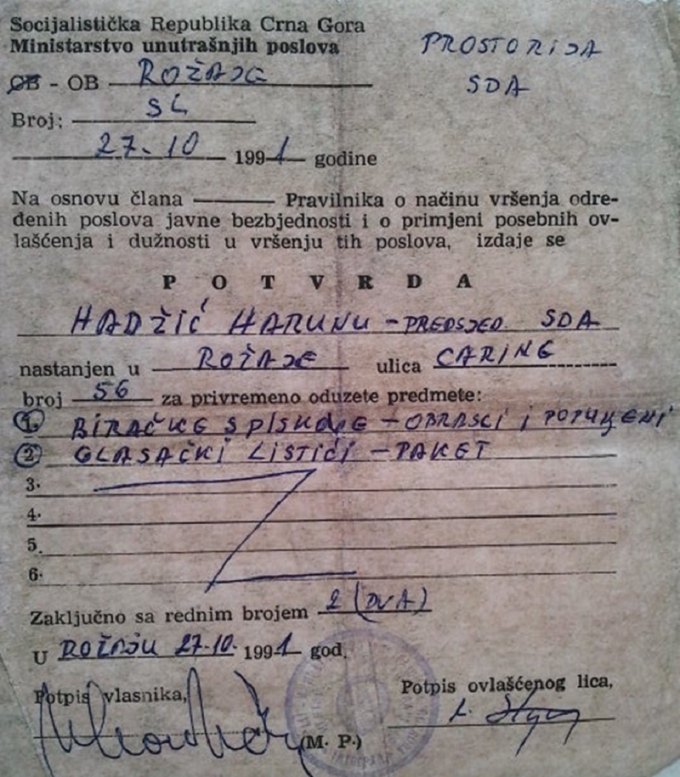 Socijalistička Republika Crna Gora
Ministarstvo unutrašnjih poslova
PROSTORIJA
SDA
OB - OB ROŽAJE
Broj: SL
27.10 1991 godine
Na osnovu člana ——— Pravilnika o načinu vršenja odre-
đenih poslova javne bezbjednosti i o primjeni posebnih ov-
lašćenja i dužnosti u vršenju tih poslova, izdaje se
P O T V R D A
HADŽIĆ HARUNU - PREDSJED. SDA
nastanjen u ROŽAJE ulica CARINE
broj 56 za privremeno oduzete predmete:
1. BIRAČKE SPISKOVE - OBRASCI I POPUNJENI
2. GLASAČKI LISTIĆI - PAKET
3.
4.
5.
6.
Zaključno sa rednim brojem 2 (DVA)
U ROŽAJU 27.10. 1991 god.
Potpis vlasnika,
Potpis ovlašćenog lica,
(M. P.)